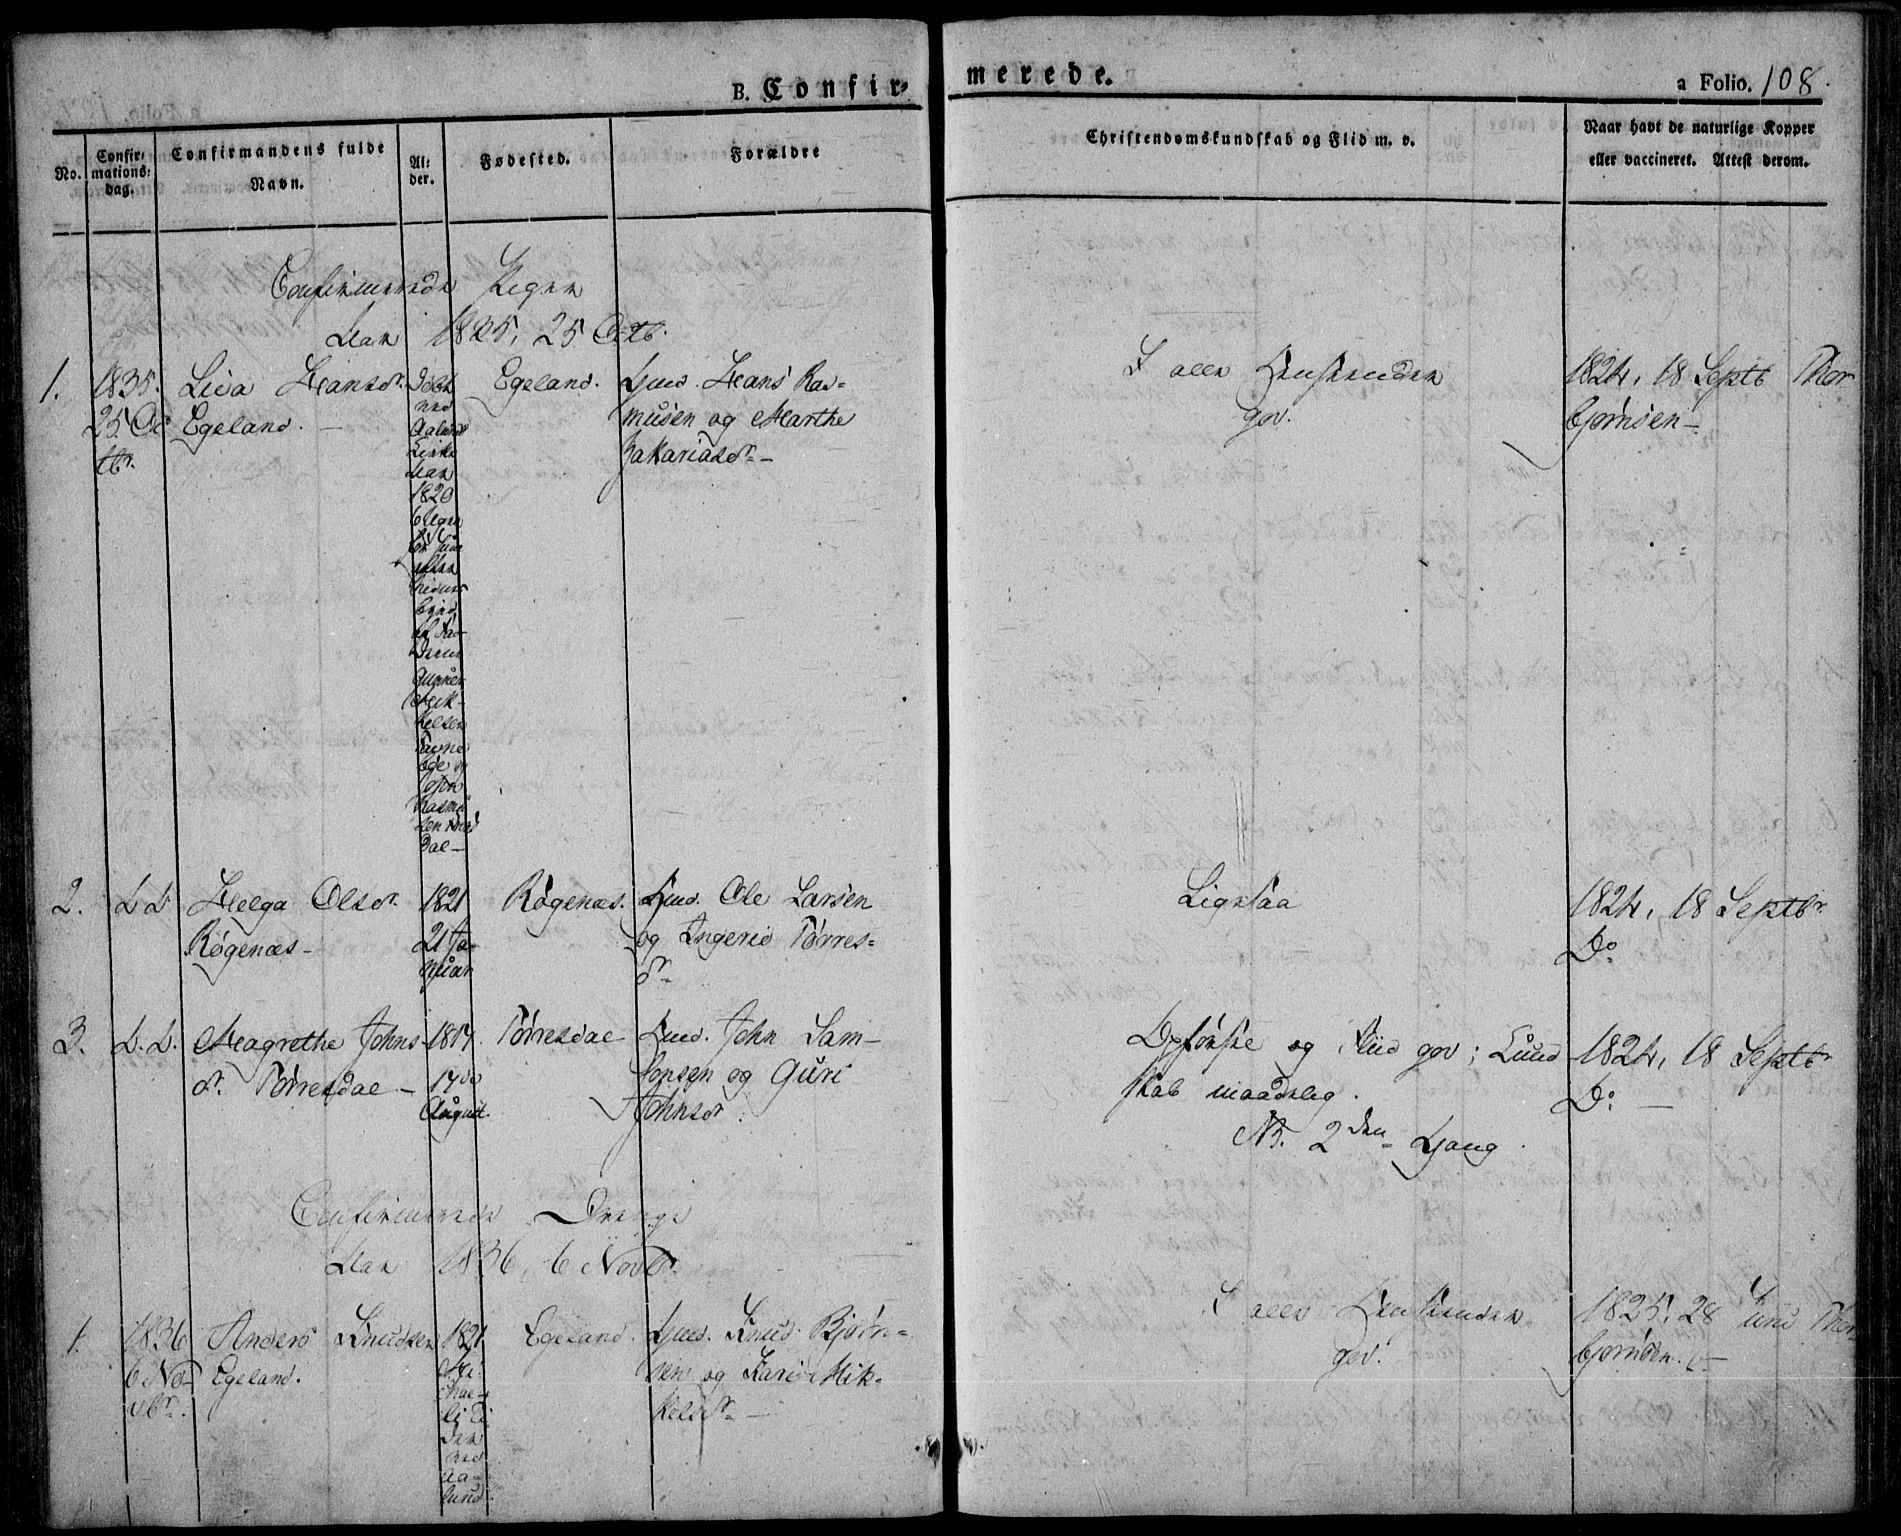 B. Confir-
merede.
a Folio. 108.
No.
Confir-
mations-
dag.
Confirmandens fulde
Navn.
Al-
der.
Fødested.
Forældre
Christendomskundskab og Flid m. v.
Naar havt de naturlige Kopper
eller vaccineret. Attest derom.
Confirmerede Piger
Aar 1835, 25 Octb.
1.
1835.
25. Oc
tbr.
Lisa Hansdr.
Egeland.
ved
Kirke
Aar
1820
Gunner
Mik-
kelsen
og
John
Rasmu
sen
dal
Egeland.
Gmd. Hans Ras-
musen og Marthe
Zakariasdr.
I alle Henseender
god.
1824, 18 Septb Thor
bjørnsen
2.
D. D.
Helga Olsdr.
Røgenæs
1821
21 Ja-
nuar
Røgenæs.
Gmd. Ole Larsen
og Ingerid Tørres-
dr.
Ligesaa
1824, 18 Septbr.
Do
3.
D. D.
Magrethe Johns-
dr. Tørresdal
1817.
17de
August.
Tørresdal
Huusm. John Sam-
sonsen og Guri
Johnsdr.
Opførsel og Flid god; Kund
skab maadelig.
NB. 2den Gang.
1824, 18 Septbr
Do
Confirmerede Drenge
Aar 1836, 6 Novbr.
1.
1836
6 No-
vbr.
Anders Knudsen
Egeland.
1821
Mi-
chae-
li Ti
der
ved
Aa-
lund
Egeland.
Gmd. Knud Bjørn-
sen og Kari Mik-
kelsdr.
I alle Henseender
god.
1825, 28 Juni Thor
bjørnsen.